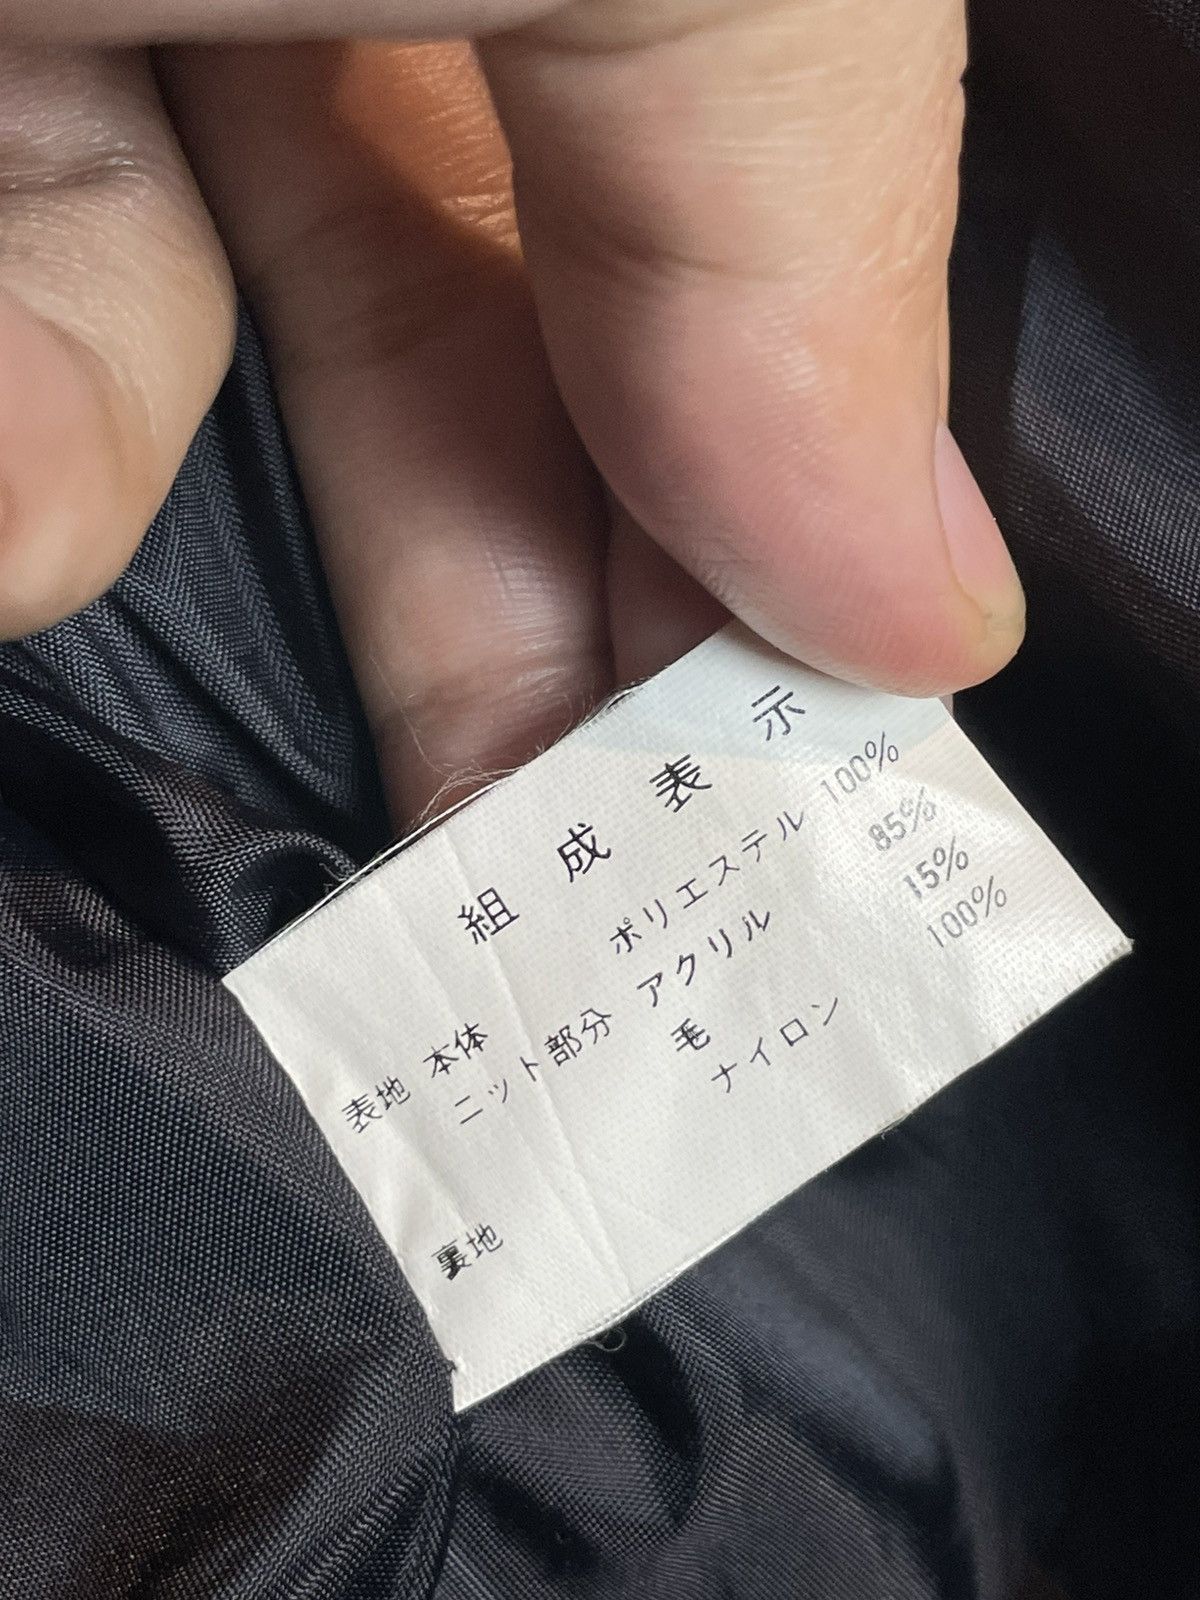 組成表示
表地 本体 ポリエステル 100%
ニット部分 アクリル 85%
毛 15%
裏地 ナイロン 100%